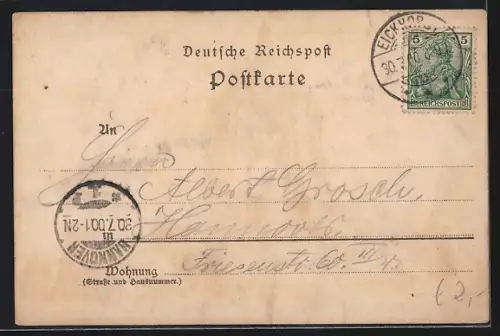 Deutsche Reichspost
Postkarte
EICKHORST
30.
5 5
REICHSPOST
An
Herrn
Albert Grosch,
in Hannover.
Friesenstr. 60 III r.
Wohnung
(Straße und Hausnummer.)
HANNOVER
30.7.00.1-2N.
* 1 *
€ 2,-